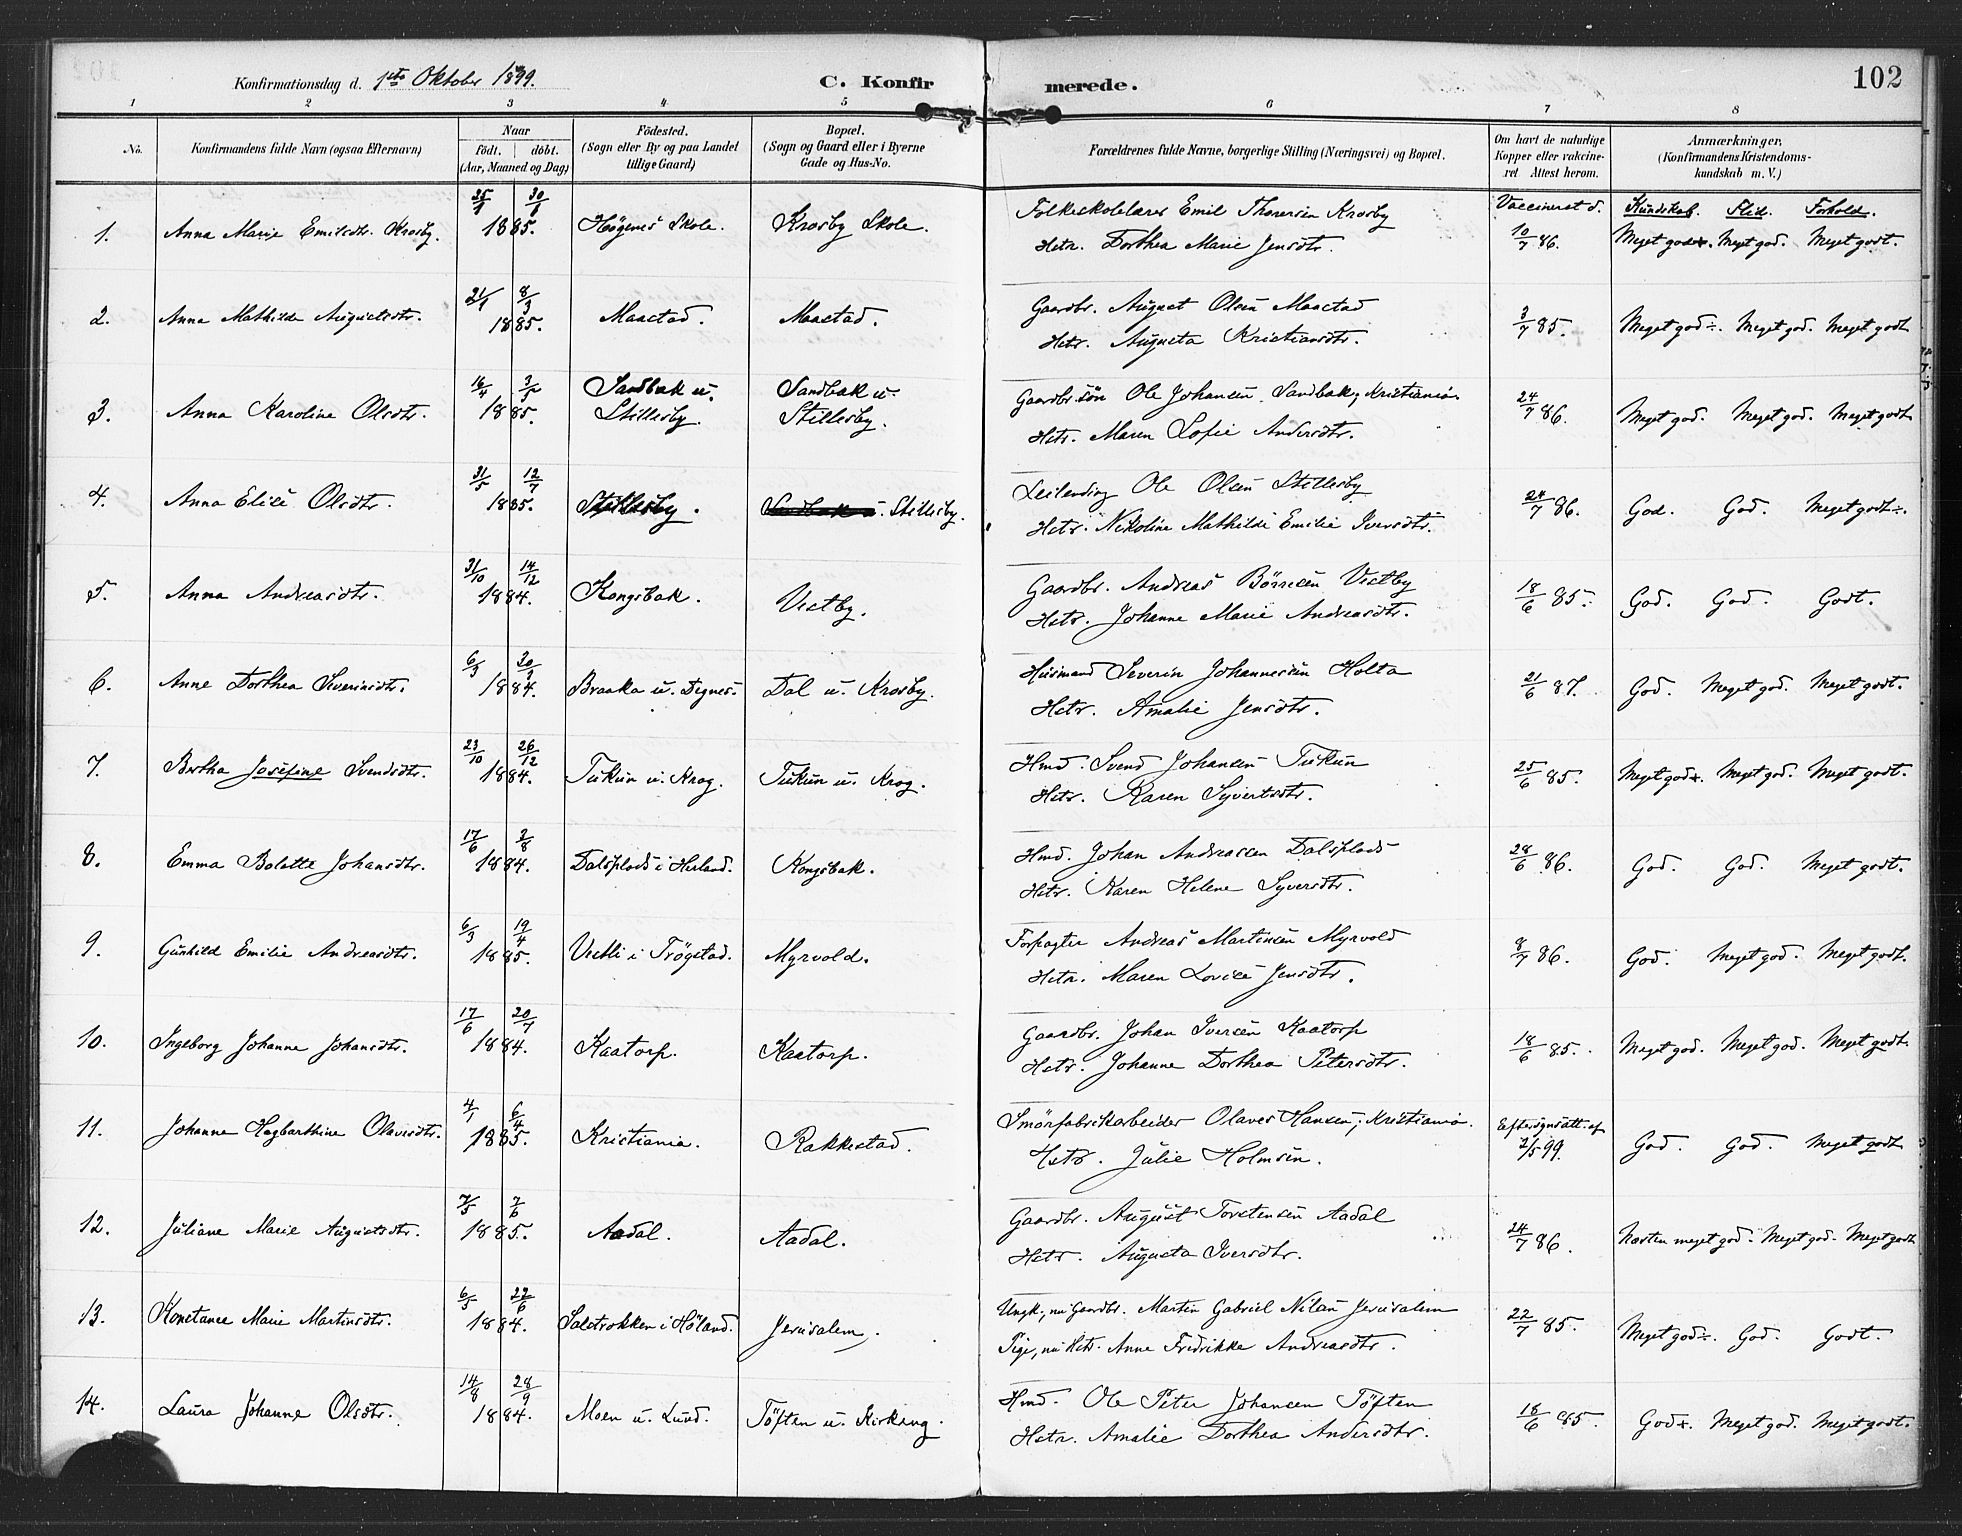 102
Konfirmationsdag d. 1ste Oktober 1899.
C. Konfirmerede.
1 2 3 4 5 6 7 8
No. Konfirmandens fulde Navn (ogsaa Efternavn) Naar födt. döbt. (Aar, Maaned og Dag) Födested. (Sogn eller By og paa Landet tillige Gaard) Bopæl. (Sogn og Gaard eller i Byerne Gade og Hus-No. Forældrenes fulde Navne, borgerlige Stilling (Næringsvei) og Bopæl. Om havt de naturlige Kopper eller vakcineret Attest herom. Anmærkninger, (Konfirmandens Kristendomskundskab m. V.)
Vaccinerat d. Kundskab. Flid. Forhold.
1. Anna Marie Emilsdtr. Krosby. 25/1 30/6 1885. Høgenes Skole. Krosby Skole. Folkeskolelærer Emil Thoresen Krosby
Hstr. Dorthea Marie Jensdtr. 10/7 86. Meget god+. Meget god. Meget godt.
2. Anna Mathilde Augustsdtr. 21/1 8/3 1885. Maastad. Maastad. Gaardbr. August Olsen Maastad
Hstr. Augusta Kristiansdtr. 3/7 85. Meget god÷. Meget god. Meget godt.
3. Anna Karoline Olsdtr. 16/4 3/5 1885. Sandbak u. Stillesby. Sandbak u. Stillesby. Gaardbr.søn Ole Johansen Sandbak, Kristiania.
Hstr. Maren Sofie Andersdtr. 24/7 86. Meget god. Meget god. Meget godt
4. Anna Elise Olsdtr. 31/5 12/7 1885. Stillesby. Stillesby. Leilending Ole Olsen Stillesby
Hstr. Nikoline Mathilde Emilie Iversdtr. 24/7 86. God. God. Meget godt÷.
5. Anna Andreasdtr. 31/10 14/12 1884. Kongsbak. Vestby. Gaardbr. Andreas Börresen Vestby
Hstr. Johanne Marie Andreasdtr. 18/6 85. God. God. Godt.
6. Anne Dorthea Severinsdtr. 6/3 1884. Braaka u. Degnes. Dal u. Krosby. Husmand Severin Johannessen Holta
Hstr. Amalie Jensdtr. 21/6 87. God. Meget god. Meget godt.
7. Bertha Josefine Svendsdtr. 23/10 26/12 1884. Tukun u. Krog. Tukun u. Krog. Hmd. Svend Johansen Tukun
Hstr. Karen Syvertsdtr. 25/6 85. Meget god+. Meget god. Meget godt.
8. Emma Bolette Johansdtr. 17/6 3/8 1884. Dalsplads i Herland. Kongsbak. Hmd. Johan Andreassen Dalsplads
Hstr. Karen Helene Syversdtr. 28/6 86. God. God. Meget godt.
9. Gunhild Emilie Andreasdtr. 6/3 19/4 1885. Vestli i Trögstad. Myrvold. Forpagter Andreas Martinsen Myrvold
Hstr. Maren Lovise Jensdtr. 8/7 86. God. Meget god. Meget godt.
10. Ingeborg Johanne Johansdtr. 17/6 20/7 1884. Kaatorp. Kaatorp. Gaardbr. Johan Iversen Kaatorp
Hstr. Johanne Dorthea Petersdtr. 18/6 85. Meget god. Meget god. Meget godt.
11. Johanne Hagbarthine Olavesdtr. 4/1 6/4 1885. Kristiania. Rakkestad. Smörfabrikarbeider Olaves Hansen, Kristiania.
Hstr. Julie Holmsen. Eftersynsatt. af 2/5 99. God. God. Meget godt
12. Juliane Marie Augustsdtr. 7/5 7/6 1885. Aadal. Aadal. Gaardbr. August Torstensen Aadal
Hstr. Augusta Iversdtr. 24/7 86. Næsten meget god. Meget god. Meget godt
13. Konstance Marie Martinsdtr. 6/5 22/6 1884. i Höland. Jerusalem. Ungk., nu Gaardbr. Martin Gabriel Nilsen Jerusalem
Pige, nu Hstr. Anne Fredrikke Andreasdtr. 22/7 85. Meget god÷. God. Godt.
14. Laura Johanne Olsdtr. 14/8 28/9 1884. Moen u. Lund. Töften u. Kirkeng. Hmd. Ole Peter Johansen Töften
Hstr. Amalie Dorthea Andersdtr. 18/6 85. God+. Meget god. Meget godt.